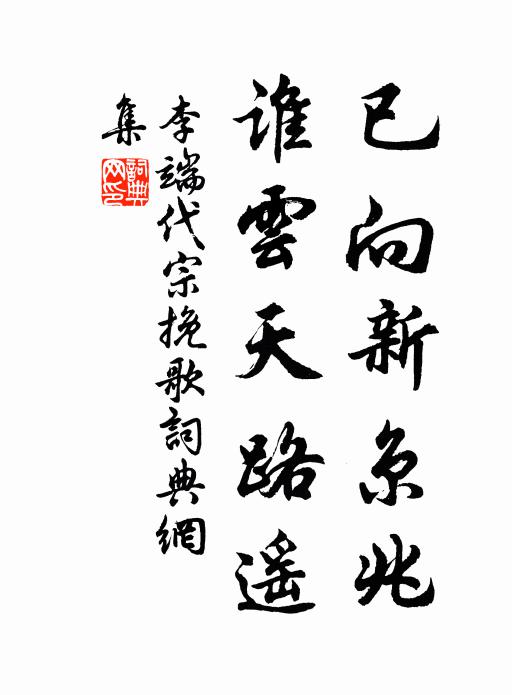 已向新京兆
誰雲天路遥
李端代宗挽歌詞典網
集
詞典網印